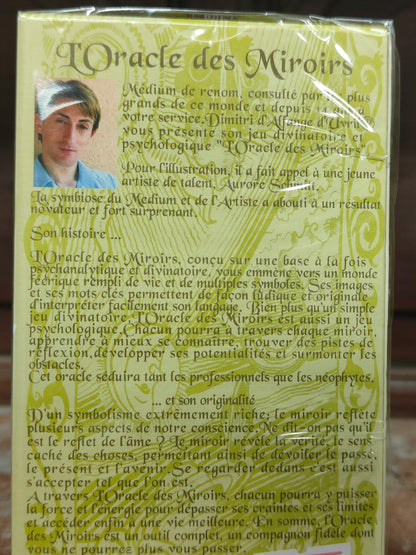 L'Oracle des Miroirs
Médium de renom, consulté par les plus
grands de ce monde et depuis 14 ans à
votre service, Dimitri d'Alfange d'Uvril
vous présente son jeu divinatoire et
psychologique "L'Oracle des Miroirs"
Pour l'illustration, il a fait appel à une jeune
artiste de talent, Aurore
La symbiose du Médium et de l'Artiste a abouti à un résultat
novateur et fort surprenant.
Son histoire ...
L'Oracle des Miroirs, conçu sur une base à la fois
psychanalytique et divinatoire, vous emmène vers un monde
féérique rempli de vie et de multiples symboles. Ses images
et ses mots clés permettent de façon ludique et originale
d'interpréter facilement son langage. Bien plus qu'un simple
jeu divinatoire, L'Oracle des Miroirs est aussi un jeu
psychologique. Chacun pourra à travers chaque miroir,
apprendre à mieux se connaître, trouver des pistes de
réflexion, développer ses potentialités et surmonter les
obstacles.
Cet oracle séduira tant les professionnels que les néophytes.
... et son originalité
D'un symbolisme extrêmement riche; le miroir reflète
plusieurs aspects de notre conscience. Ne dit-on pas qu'il
est le reflet de l'âme ? Le miroir révèle la vérité, le sens
caché des choses, permettant ainsi de dévoiler le passé,
le présent et l'avenir. Se regarder dedans c'est aussi
s'accepter tel que l'on est.
A travers L'Oracle des Miroirs, chacun pourra y puiser
la force et l'énergie pour dépasser ses craintes et ses limites
et accéder enfin à une vie meilleure. En somme, l'Oracle
des Miroirs est un outil complet, un compagnon fidèle dont
vous ne pourrez plus vous passer.